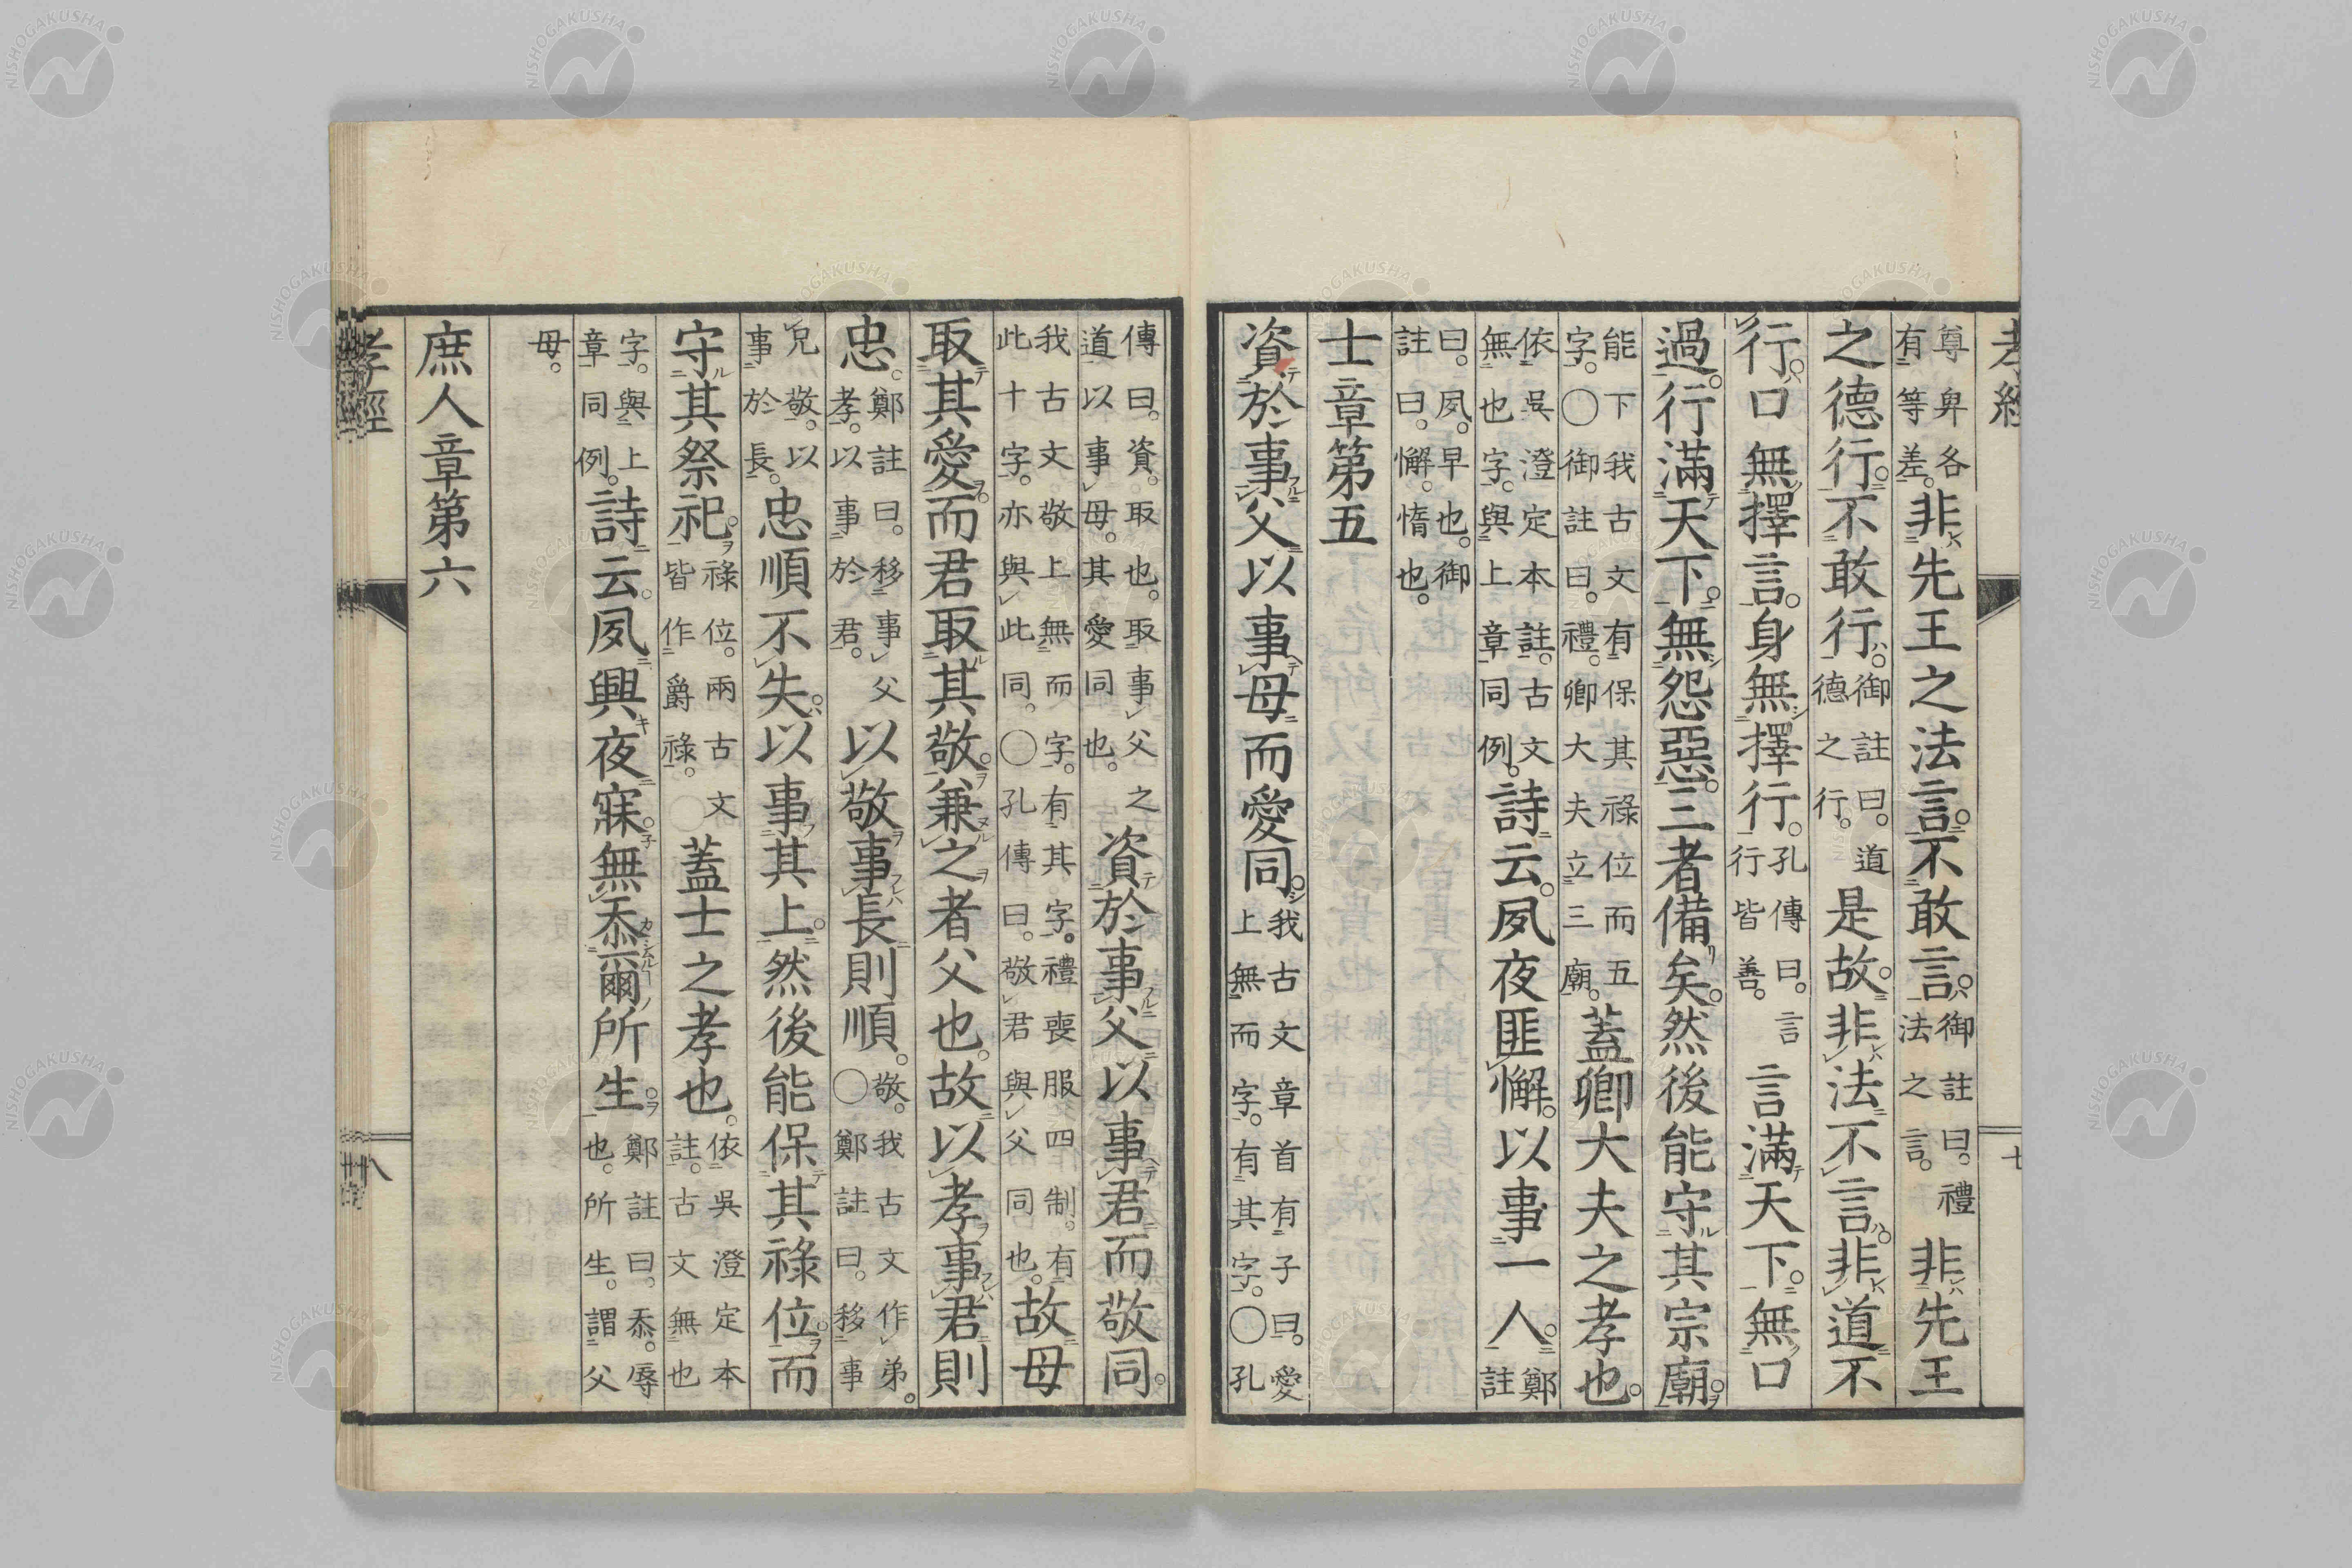 孝經
七
尊卑各有等差。非先王之法言。不敢言。御註曰。禮法之言。非先王
之德行。不敢行。御註曰。道德之行。是故。非法不言。非道不
行。口無擇言。身無擇行。孔傳曰。言行皆善。言滿天下。無口
過。行滿天下。無怨惡。三者備矣。然後能守其宗廟。
能下我古文有保其祿位而五字。〇御註曰。禮。卿大夫立三廟。蓋卿大夫之孝也。
依吳澄定本註。古文無也字。與上章同例。詩云。夙夜匪懈。以事一人。鄭註
曰。夙。早也。御註曰。懈。惰也。
士章第五
資於事父以事母而愛同。我古文章首有子曰。愛上無而字。有其字。〇孔
傳曰。資。取也。取事父之道以事母。其愛同也。資於事父以事君而敬同。
我古文敬上無而字。有其字。禮喪服四制。有此十字。亦與此同。〇孔傳曰。敬君與父同也。故母
取其愛。而君取其敬。兼之者父也。故以孝事君則
忠。鄭註曰。移事父孝。以事於君。以敬事長則順。敬。我古文作弟。〇鄭註曰。移事
兄敬。以事於長。忠順不失。以事其上。然後能保其祿位。而
守其祭祀。祿位。兩古文皆作爵祿。〇蓋士之孝也。依吳澄定本註。古文無也
字。與上章同例。詩云。夙興夜寐。無忝爾所生。鄭註曰。忝。辱也。所生。謂父
母。
庶人章第六
孝經
八